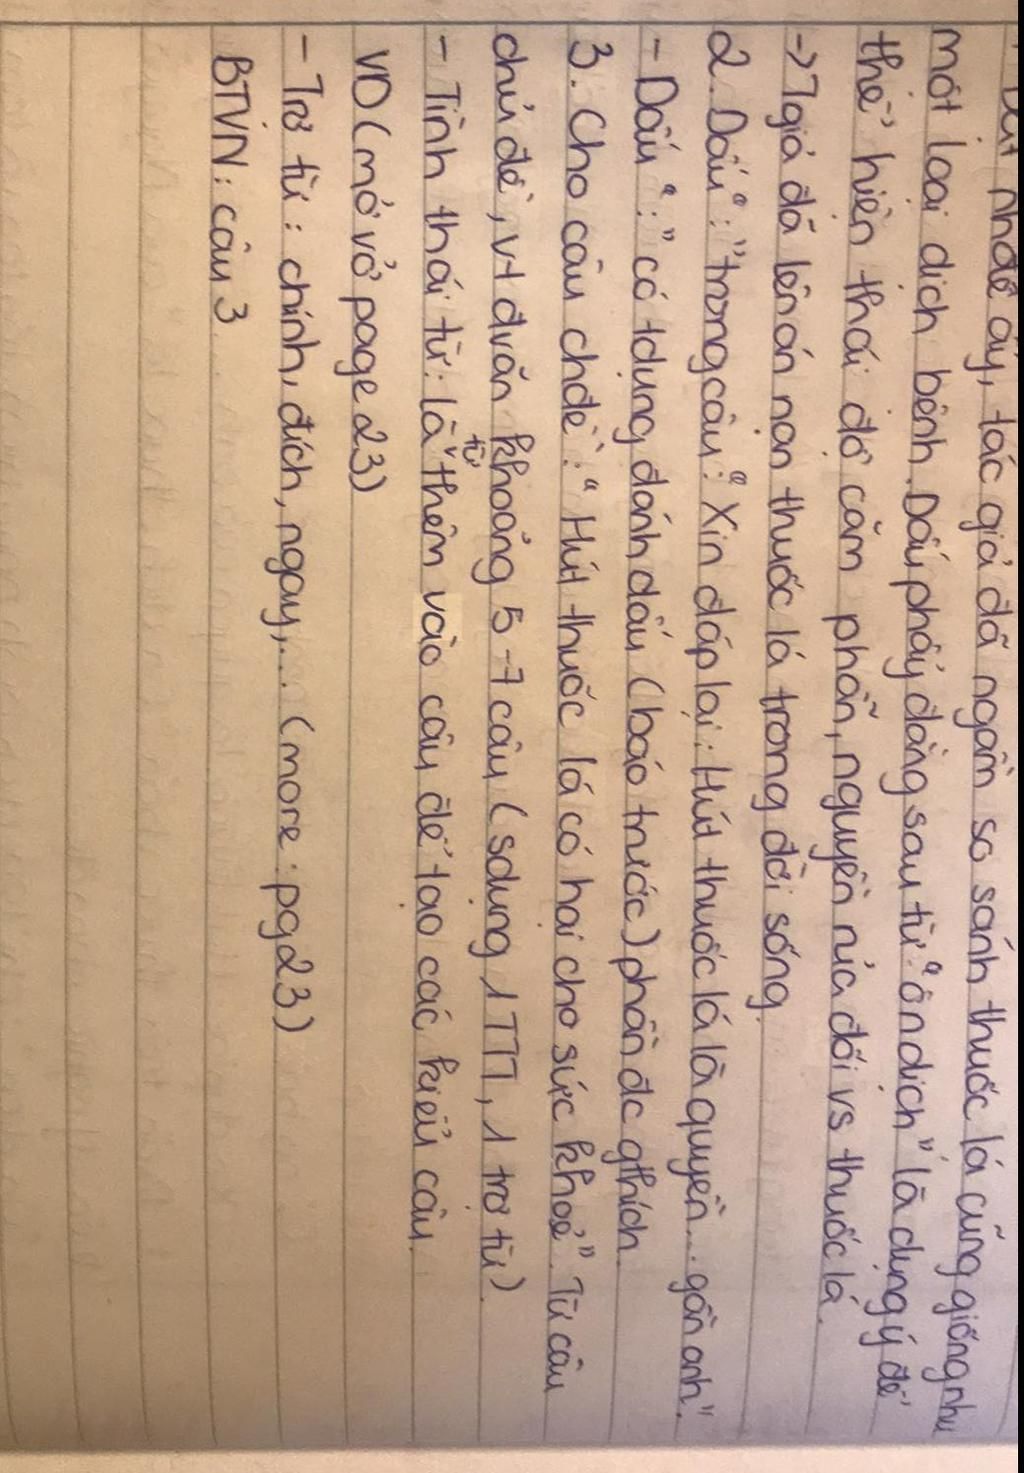 nhđề ấy, tác giả đã ngầm so sánh thuốc lá cũng giống như
một loại dịch bệnh. Dấu phẩy đằng sau từ "ôn dịch" là dụng ý để
thể hiện thái độ căm phẫn, nguyền rủa đối vs thuốc lá.
-> Tgiả đã lên án nạn thuốc lá trong đời sống.
2. Dấu ":" trong câu: "Xin đáp lại: Hút thuốc lá là quyền... gần anh".
- Dấu ":" có tdụng đánh dấu (báo trước) phần đc gthích.
3. Cho câu chđề: "Hút thuốc lá có hại cho sức khoẻ". Từ câu
chủ đề, vt đvăn khoảng 5-7 câu (sdụng 1 TTT, 1 trợ từ).
- Tình thái từ: là "từ thêm vào câu để tạo các kiểu câu.
VD (mở vở page 23)
- Trợ từ: chính, đích, ngay,... (more: pg 23)
BTVN: câu 3